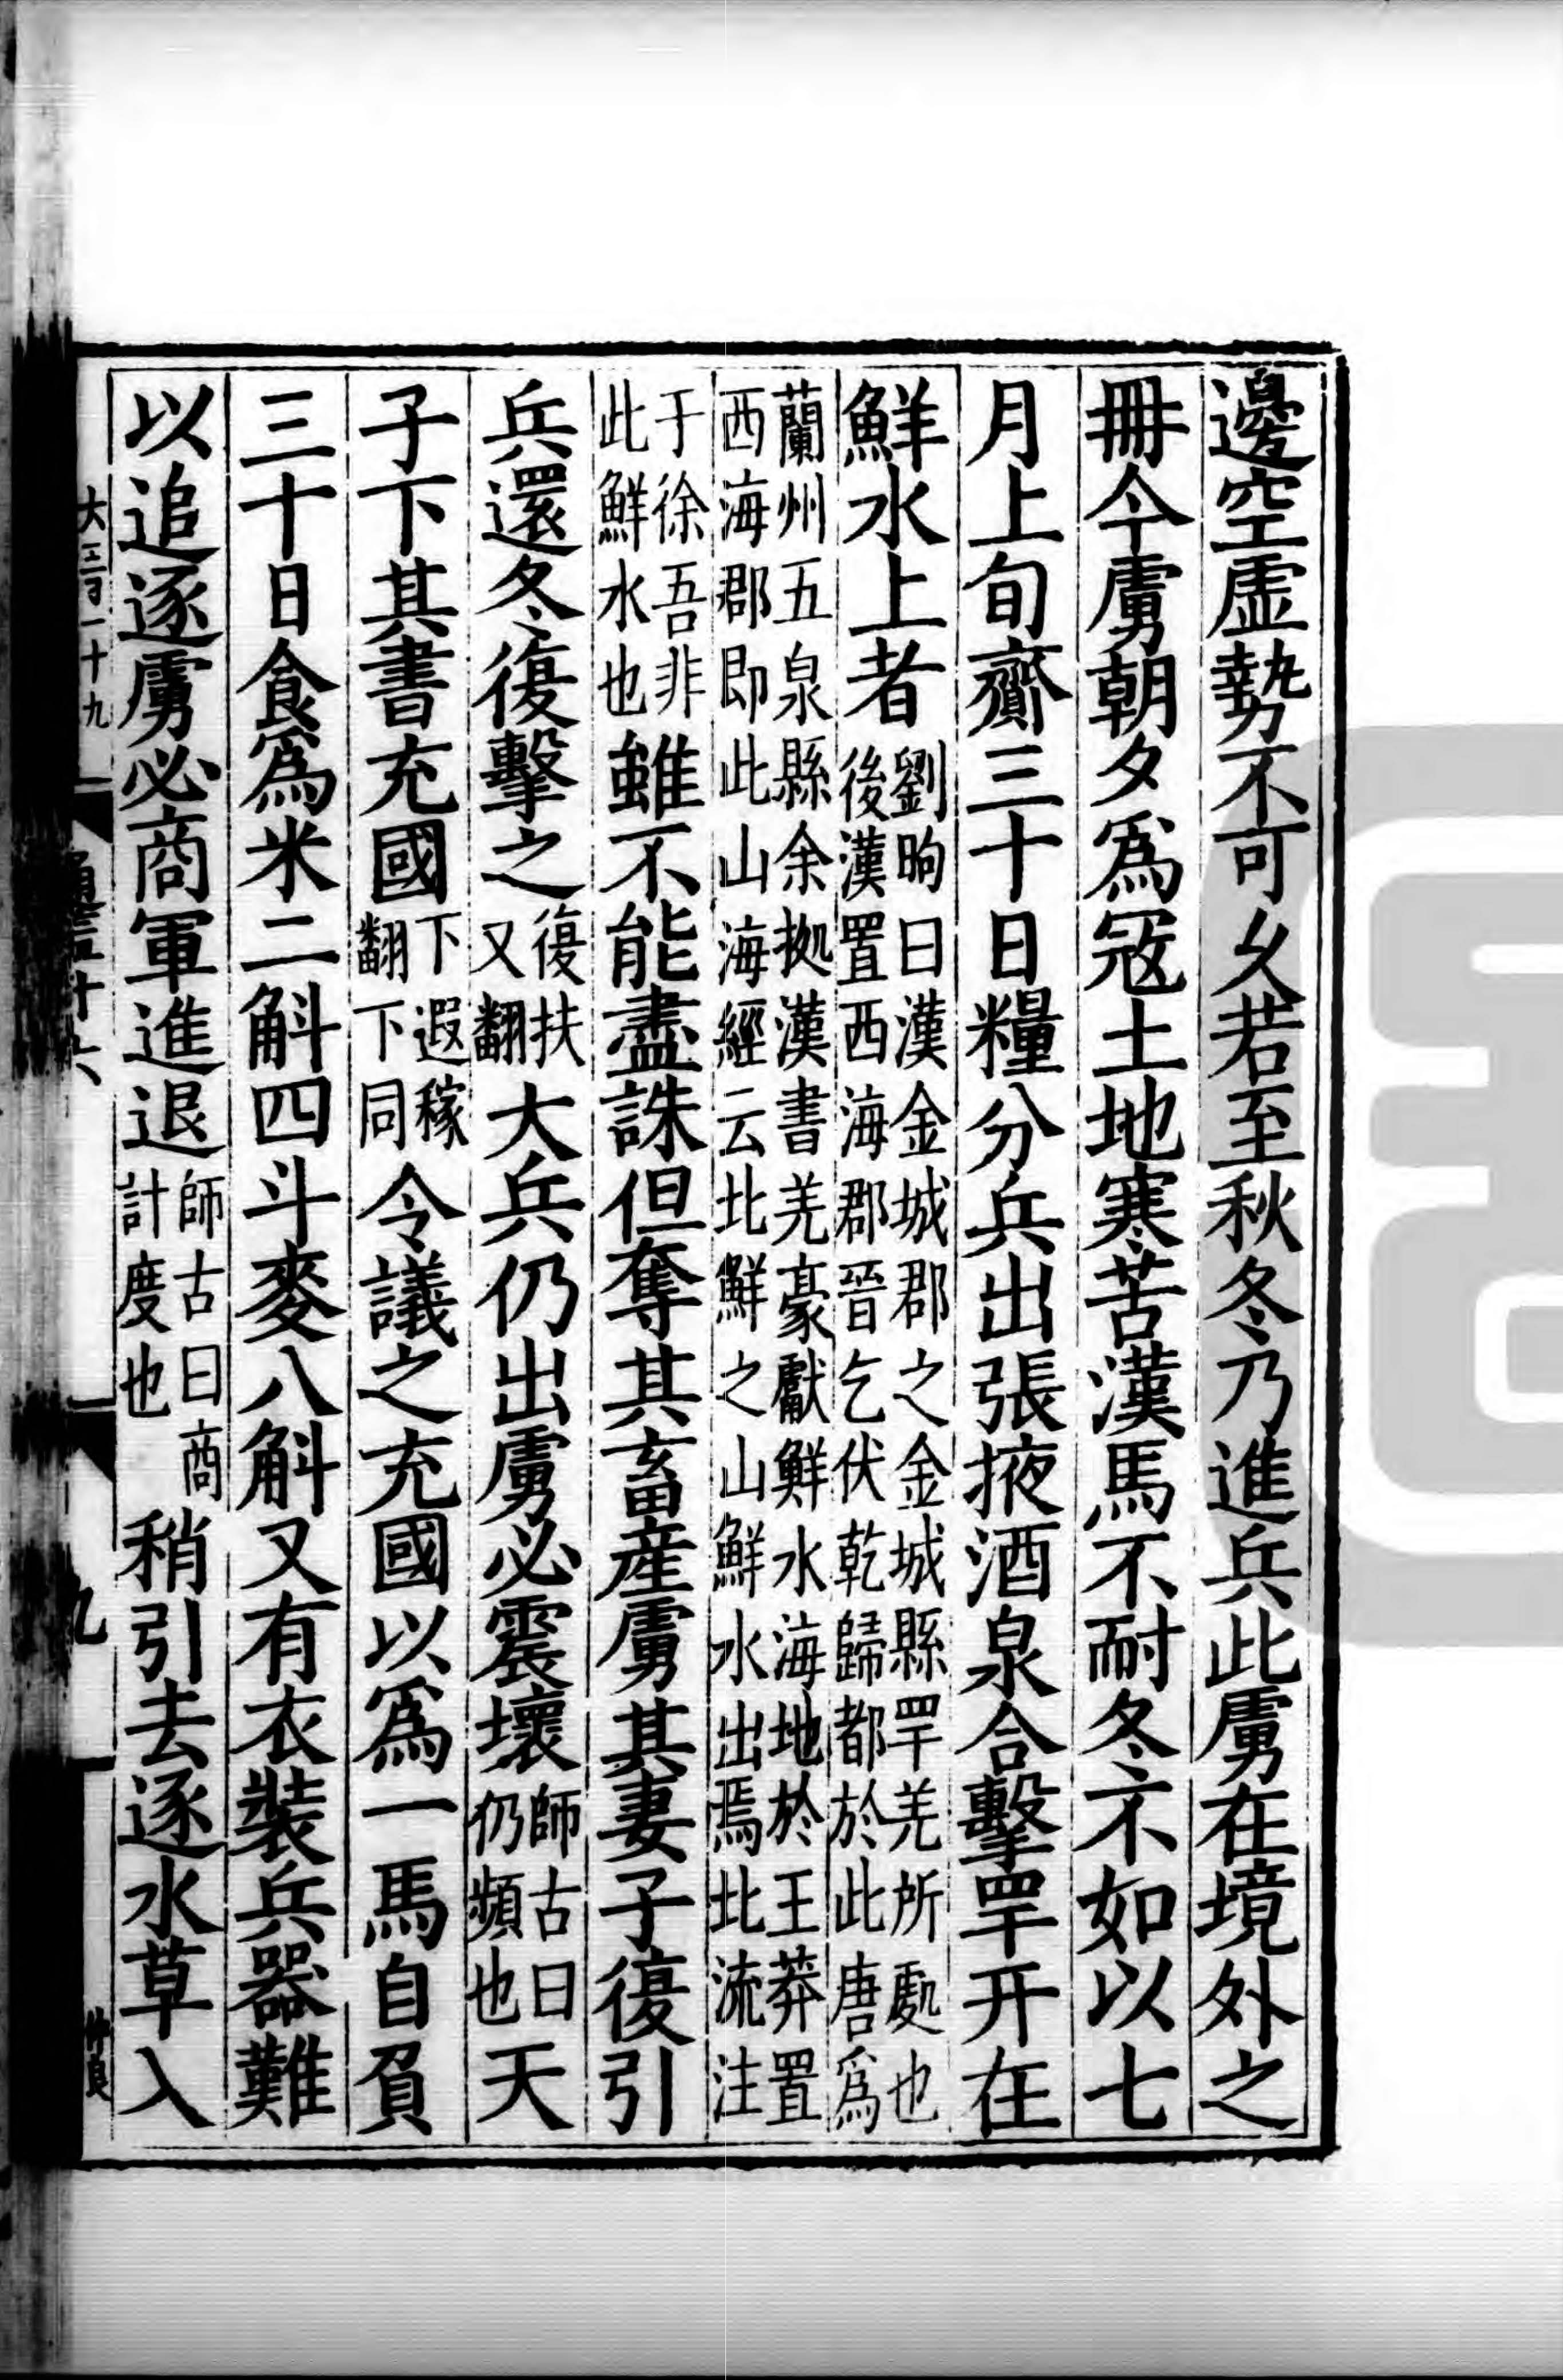 邊空虛勢不可乆若至秋冬乃進兵此虜在境外之
冊今虜朝夕爲宼土地寒苦漢馬不耐冬不如以七
月上旬齎三十日糧分兵出張掖酒泉合擊䍐幵在
鮮水上者劉昫曰漢金城郡之金城縣䍐羌所處也
後漢置西海郡晉乞伏乾歸都於此唐爲
蘭州五泉縣余拠漢書羌豪獻鮮水海地於王莽置
西海郡即此山海經云北鮮之山鮮水出焉北流注
于徐吾非
此鮮水也雖不能盡誅但奪其畜産虜其妻子復引
兵還冬復擊之復扶
又翻大兵仍出虜必震壞師古曰
仍頻也天
子下其書充國下遐稼
翻下同令議之充國以爲一馬自負
三十日食爲米二斛四斗麥八斛又有衣裝兵器難
以追逐虜必商軍進退師古曰商
計度也稍引去逐水草入
九